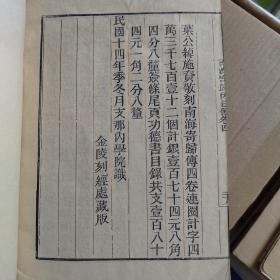 葉公綽施資敬刻南海寄歸傳四卷連圈計字四
萬三千七百壹十二個計銀壹百七十四元八角
四分八釐簽條尾頁功德書目錄共支壹百八十
四元一角二分八釐
民國十四年季冬月支那內學院識
金陵刻經處藏版